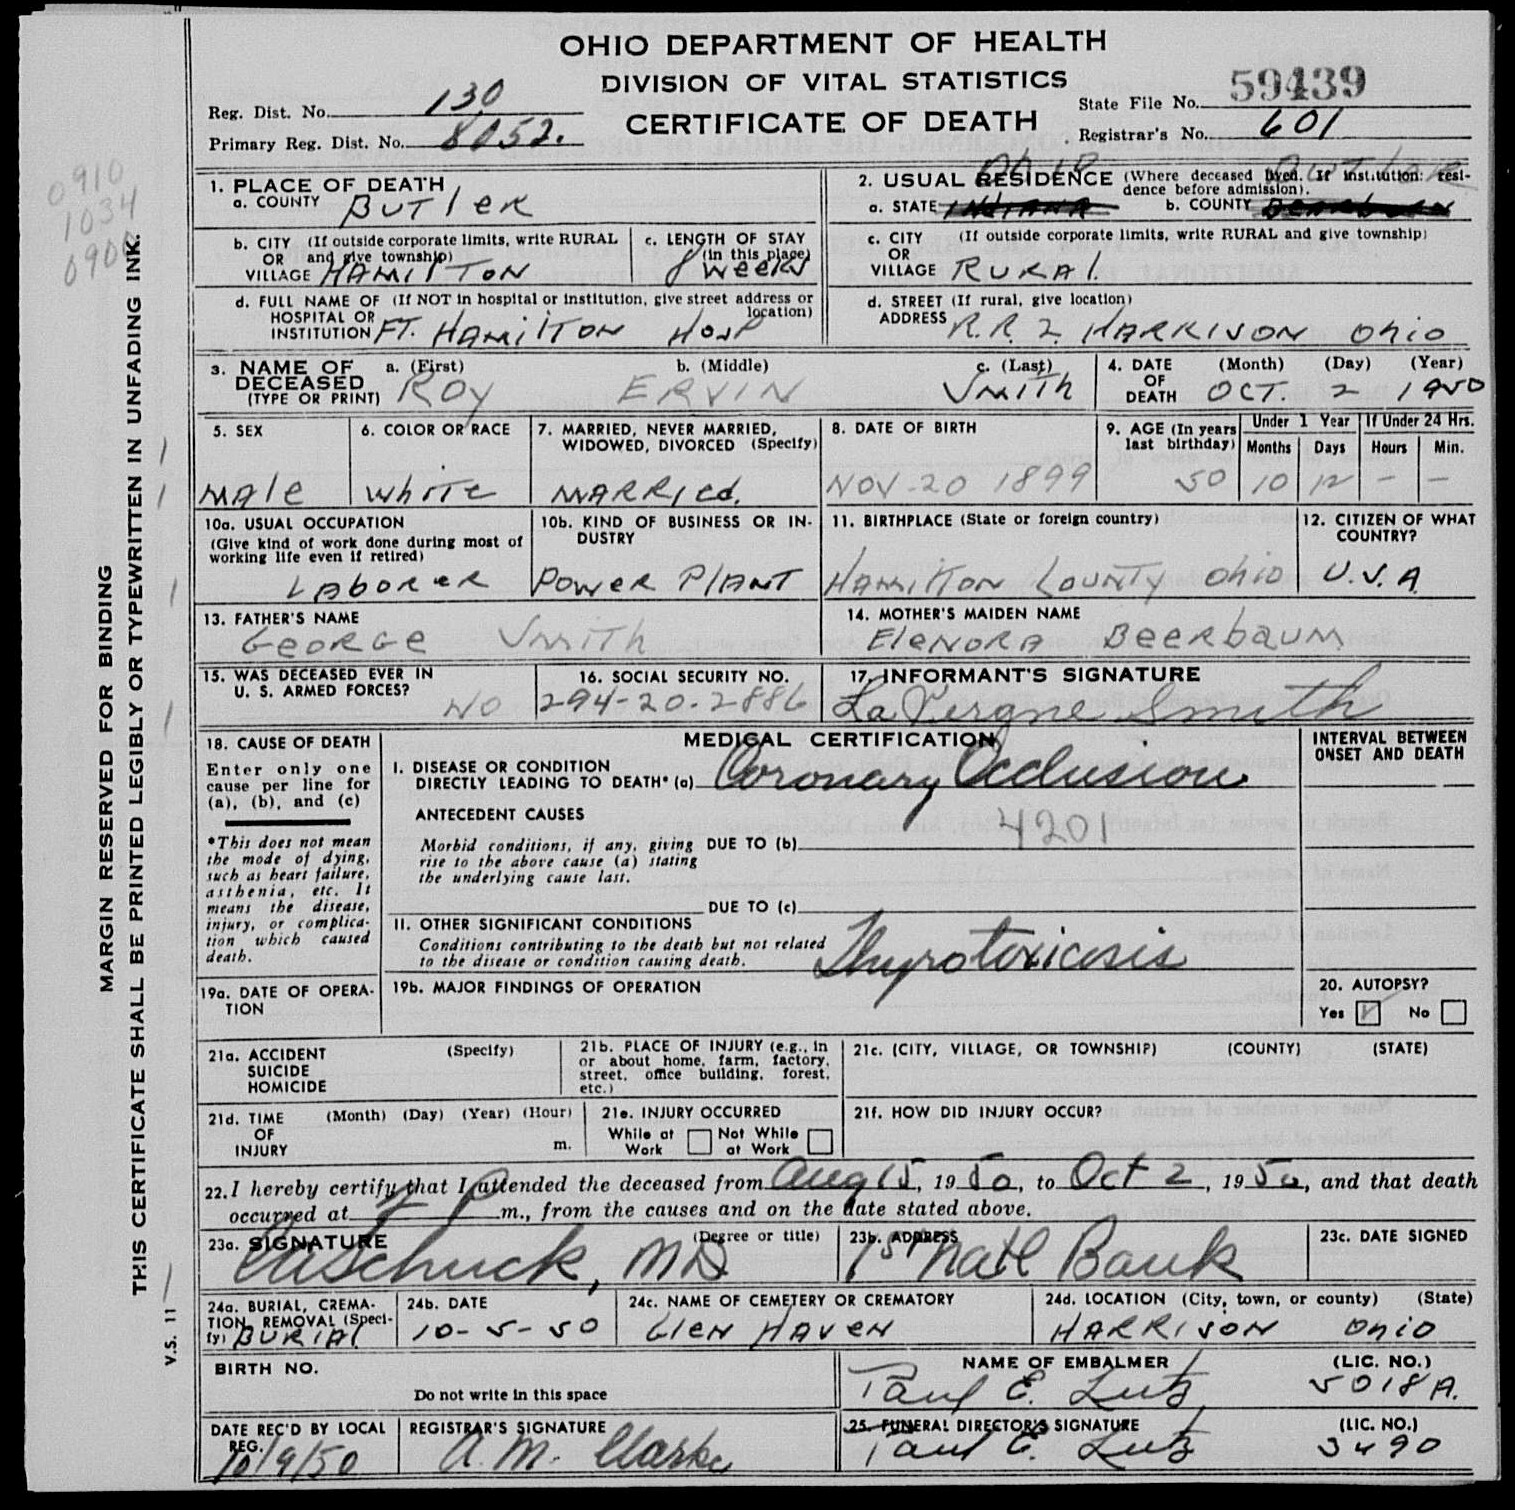 OHIO DEPARTMENT OF HEALTH
DIVISION OF VITAL STATISTICS
CERTIFICATE OF DEATH
Reg. Dist. No. 130
Primary Reg. Dist. No. 8052.
State File No. 59439
Registrar's No. 601
0910
1034
090
MARGIN RESERVED FOR BINDING
THIS CERTIFICATE SHALL BE PRINTED LEGIBLY OR TYPEWRITTEN IN UNFADING INK.
V.S. 11
1. PLACE OF DEATH
a. COUNTY BUTLER
2. USUAL RESIDENCE (Where deceased lived. If institution: resi-
dence before admission).
a. STATE INDIANA OHIO b. COUNTY DEARBORN BUTLER
b. CITY (If outside corporate limits, write RURAL
OR and give township)
VILLAGE HAMILTON
c. LENGTH OF STAY
(in this place)
8 weeks
c. CITY (If outside corporate limits, write RURAL and give township)
OR
VILLAGE RURAL
d. FULL NAME OF (If NOT in hospital or institution, give street address or
HOSPITAL OR location)
INSTITUTION FT. HAMILTON HOSP
d. STREET (If rural, give location)
ADDRESS R.R. 2 HARRISON OHIO
3. NAME OF DECEASED (TYPE OR PRINT)
a. (First) ROY
b. (Middle) ERVIN
c. (Last) SMITH
4. DATE OF DEATH (Month) (Day) (Year)
OCT. 2 1950
5. SEX
MALE
6. COLOR OR RACE
WHITE
7. MARRIED, NEVER MARRIED,
WIDOWED, DIVORCED (Specify)
MARRIED.
8. DATE OF BIRTH
NOV-20 1899
9. AGE (In years
last birthday)
50
Under 1 Year
Months 10
Days 12
If Under 24 Hrs.
Hours -
Min. -
10a. USUAL OCCUPATION
(Give kind of work done during most of
working life even if retired)
LABORER
10b. KIND OF BUSINESS OR IN-
DUSTRY
POWER PLANT
11. BIRTHPLACE (State or foreign country)
HAMILTON COUNTY OHIO
12. CITIZEN OF WHAT
COUNTRY?
U.S.A.
13. FATHER'S NAME
GEORGE SMITH
14. MOTHER'S MAIDEN NAME
ELENORA BEERBAUM
15. WAS DECEASED EVER IN
U. S. ARMED FORCES?
NO
16. SOCIAL SECURITY NO.
294-20-2886
17. INFORMANT'S SIGNATURE
LaVergne Smith
18. CAUSE OF DEATH
Enter only one
cause per line for
(a), (b), and (c)
*This does not mean
the mode of dying,
such as heart failure,
asthenia, etc. It
means the disease,
injury, or complica-
tion which caused
death.
MEDICAL CERTIFICATION
INTERVAL BETWEEN
ONSET AND DEATH
I. DISEASE OR CONDITION
DIRECTLY LEADING TO DEATH* (a) Coronary Occlusion
ANTECEDENT CAUSES
4201
Morbid conditions, if any, giving DUE TO (b)
rise to the above cause (a) stating
the underlying cause last.
DUE TO (c)
II. OTHER SIGNIFICANT CONDITIONS
Conditions contributing to the death but not related
to the disease or condition causing death.
Thyrotoxicosis
19a. DATE OF OPERA-
TION
19b. MAJOR FINDINGS OF OPERATION
20. AUTOPSY?
Yes ☑ No ☐
21a. ACCIDENT (Specify)
SUICIDE
HOMICIDE
21b. PLACE OF INJURY (e.g., in
or about home, farm, factory,
street, office building, forest,
etc.)
21c. (CITY, VILLAGE, OR TOWNSHIP) (COUNTY) (STATE)
21d. TIME (Month) (Day) (Year) (Hour)
OF
INJURY m.
21e. INJURY OCCURRED
While at Work ☐ Not While at Work ☐
21f. HOW DID INJURY OCCUR?
22. I hereby certify that I attended the deceased from Aug 15, 1950, to Oct 2, 1950, and that death
occurred at P m., from the causes and on the date stated above.
23a. SIGNATURE (Degree or title)
Schuck, MD
23b. ADDRESS
1st Natl Bank
23c. DATE SIGNED
24a. BURIAL, CREMA-
TION, REMOVAL (Speci-
fy) BURIAL
24b. DATE
10-5-50
24c. NAME OF CEMETERY OR CREMATORY
GLEN HAVEN
24d. LOCATION (City, town, or county) (State)
HARRISON OHIO
BIRTH NO.
Do not write in this space
NAME OF EMBALMER (LIC. NO.)
Paul E. Lutz 5018A.
DATE REC'D BY LOCAL
REG.
10/9/50
REGISTRAR'S SIGNATURE
A.M. Clarke
25. FUNERAL DIRECTOR'S SIGNATURE (LIC. NO.)
Paul E. Lutz 3490